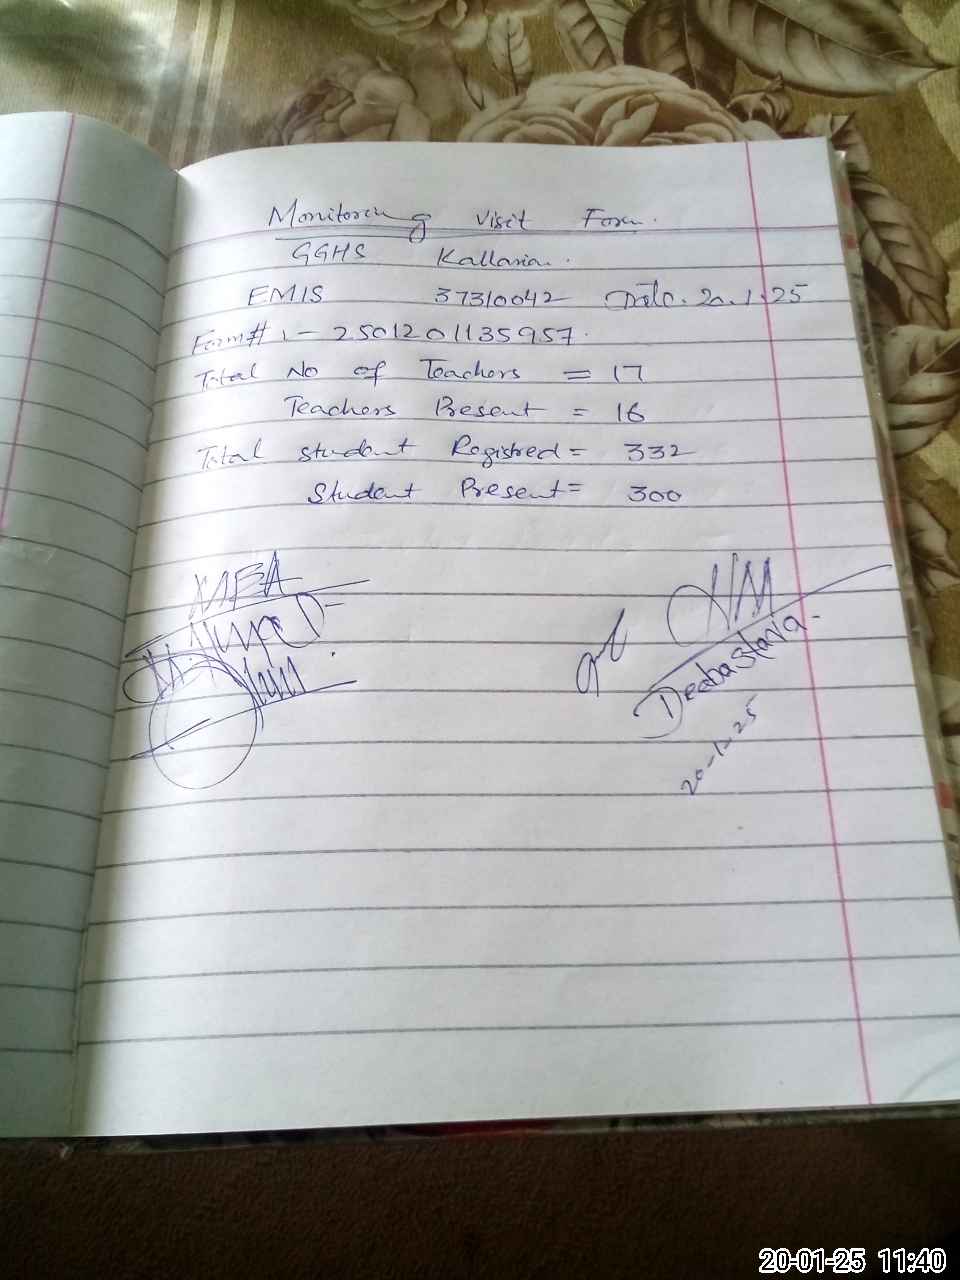 Monitoring Visit Form.
GGHS Kallaria.
EMIS 37310042 Date. 20.1.25
Form # 1-2501201135957.
Total No of Teachers = 17
Teachers Present = 16
Total student Registred = 332
Student Present = 300
MEA
HM
20-1-25
20-01-25 11:40